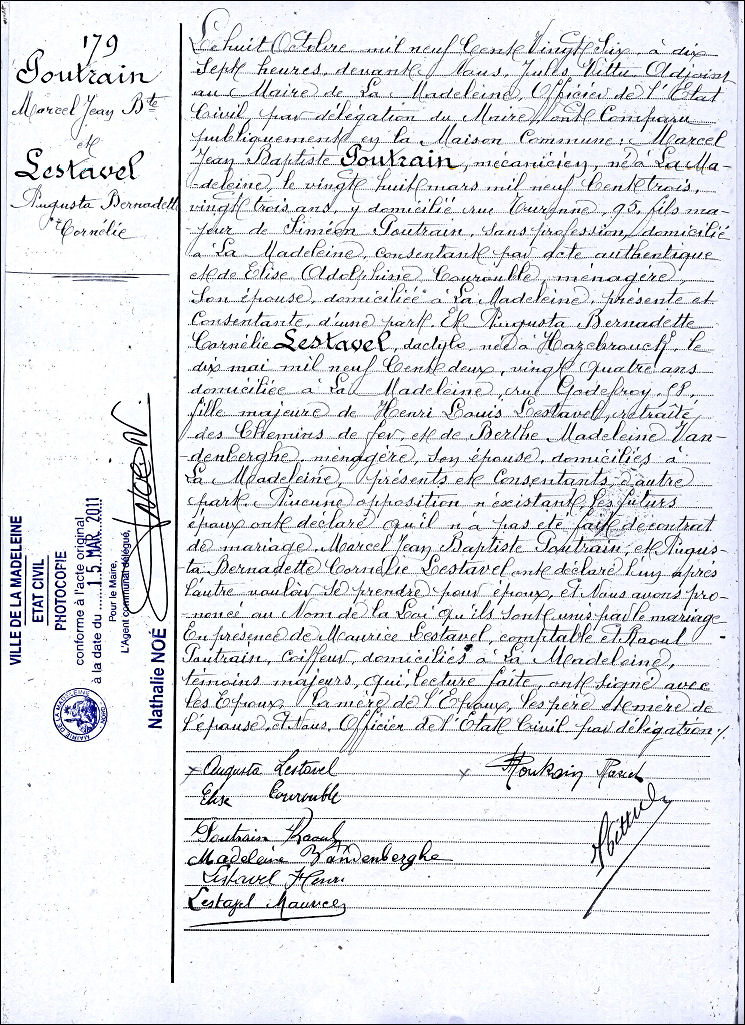 179
Poutrain
Marcel Jean Bte
et
Lestavel
Augusta Bernadette
Cornélie
Le huit Octobre mil neuf Cent Vingt Six, à dix
Sept heures, devant Nous, Jules Vittu, Adjoint
au Maire de La Madeleine, Officier de l'Etat
Civil par délégation du Maire, ont Comparu
publiquement en la Maison Commune: Marcel
Jean Baptiste Poutrain, mécanicien, né à La Ma-
-deleine, le vingt huit mars mil neuf Cent trois,
vingt trois ans, y domicilié rue Turenne, 95, fils ma-
jeur de Siméon Poutrain, Sans profession, domicilié
à La Madeleine, consentant par acte authentique
et de Elise Adolphine Courouble, ménagère,
Son épouse, domiciliée à La Madeleine, présente et
Consentante, d'une part. Et Augusta Bernadette
Cornélie Lestavel, dactylo, née à Hazebrouck, le
dix mai mil neuf Cent deux, vingt quatre ans
domiciliée à La Madeleine, rue Godefroy, 58,
fille majeure de Henri Louis Lestavel, retraité
des Chemins de fer, et de Berthe Madeleine Van-
-denberghe, ménagère, Son épouse, domiciliés à
La Madeleine, présents et Consentants, d'autre
part. Aucune opposition n'existant, les futurs
époux ont déclaré qu'il n'a pas été fait de contrat
de mariage. Marcel Jean Baptiste Poutrain, et Augus-
ta Bernadette Cornélie Lestavel ont déclaré l'un après
l'autre vouloir Se prendre pour époux, Et Nous avons pro-
noncé au Nom de la Loi qu'ils sont unis par le mariage
En présence de Maurice Lestavel, comptable et Raoul
Poutrain, Coiffeur, domiciliés à La Madeleine,
témoins majeurs, qui, lecture faite, ont signé avec
les Epoux, la mère de l'Epoux, les père et mère de
l'épouse, et Nous, Officier de l'Etat Civil par délégation./.
x Augusta Lestavel
x Poutrain Marcel
Elise Courouble
Poutrain Raoul
Vittu
Madeleine Vandenberghe
Lestavel Henri
Lestavel Maurice
VILLE DE LA MADELEINE
ETAT CIVIL
PHOTOCOPIE
conforme à l'acte original
à la date du 15 MAR. 2011
Pour le Maire,
L'Agent communal délégué,
Nathalie NOÉ